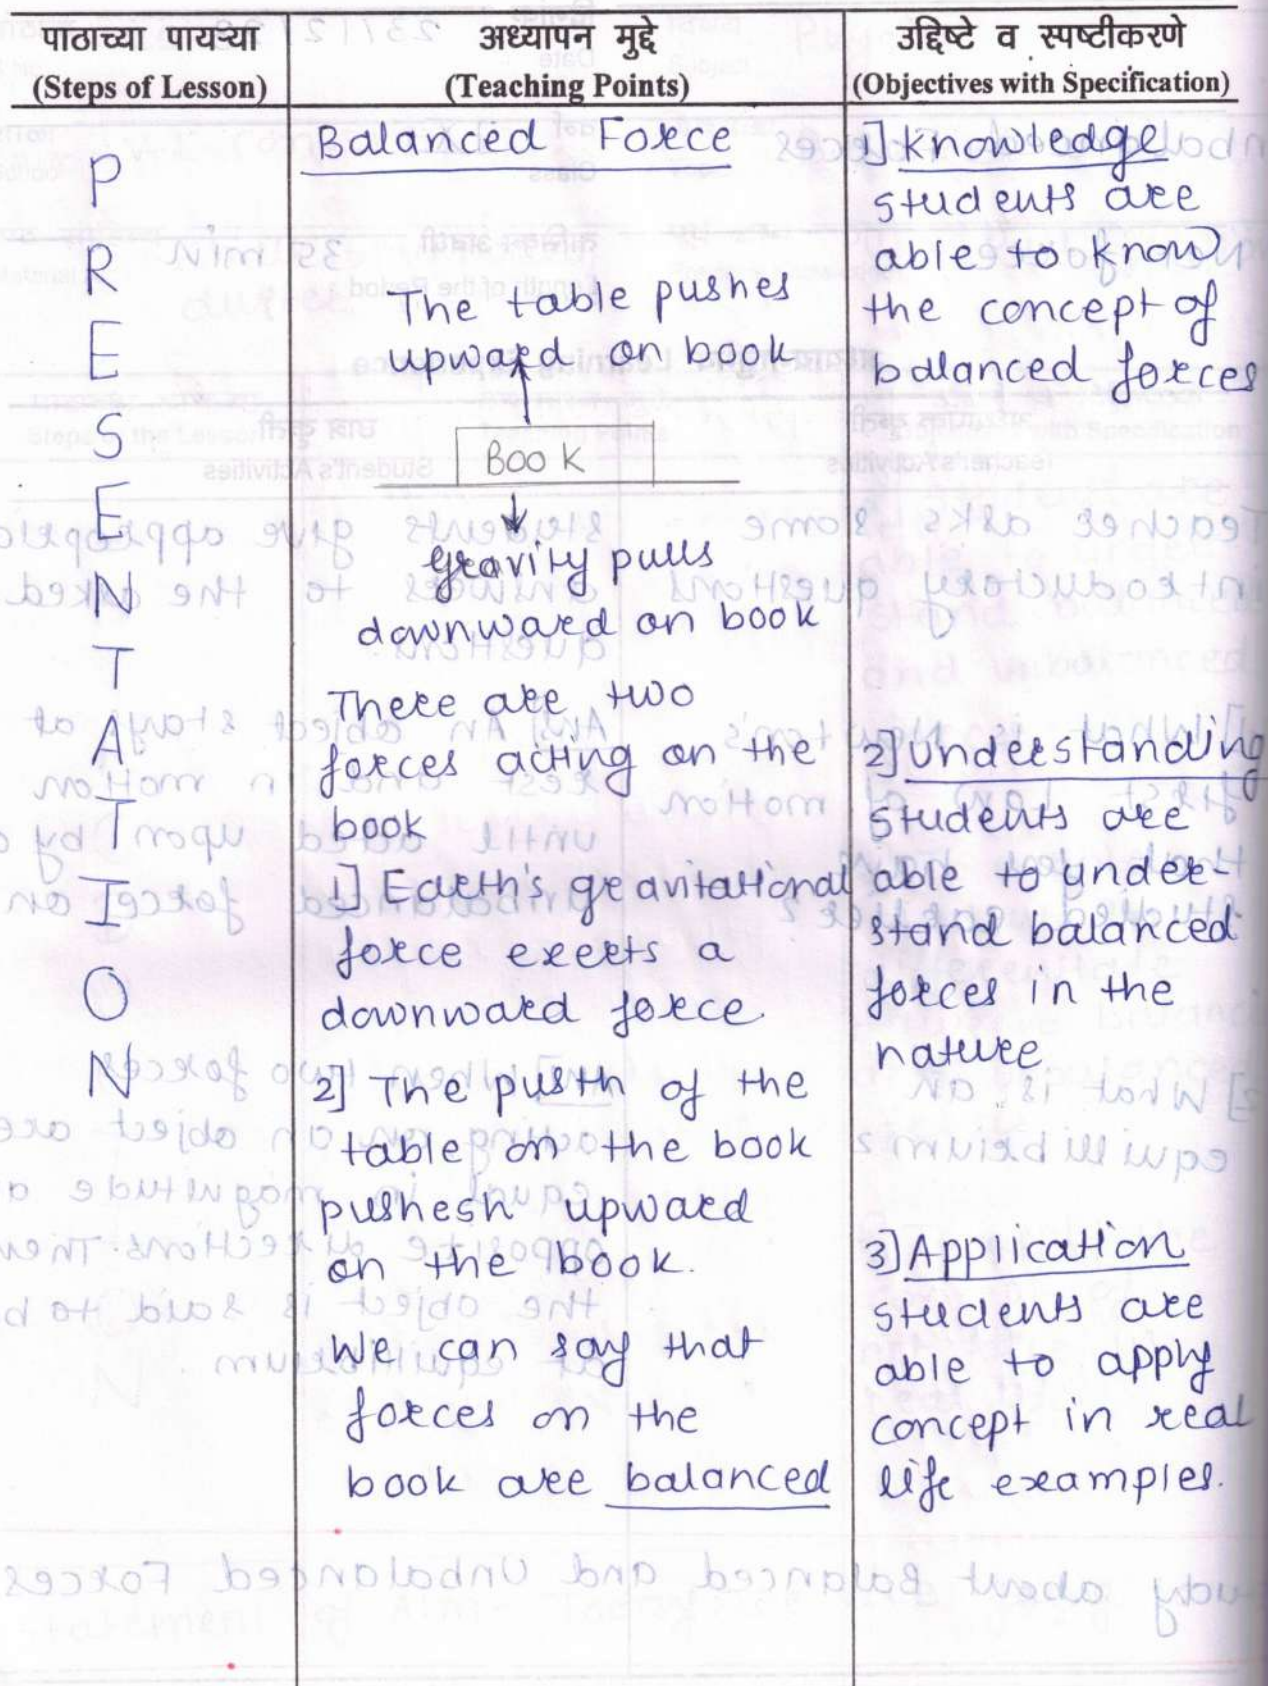 पाठाच्या पायऱ्या
(Steps of Lesson)
अध्यापन मुद्दे
(Teaching Points)
उद्दिष्टे व स्पष्टीकरणे
(Objectives with Specification)
PRESENTATION
Balanced Force
The table pushes
upward on book
BOOK
gravity pulls
downward on book
There are two
forces acting on the
book
1] Earth's gravitational
force exerts a
downward force.
2] The pusth of the
table on the book
pushesh upward
on the book.
We can say that
forces on the
book are balanced
1] Knowledge
students are
able to know
the concept of
balanced forces
2] Understanding
students are
able to under-
stand balanced
forces in the
nature
3] Application
students are
able to apply
concept in real
life examples.